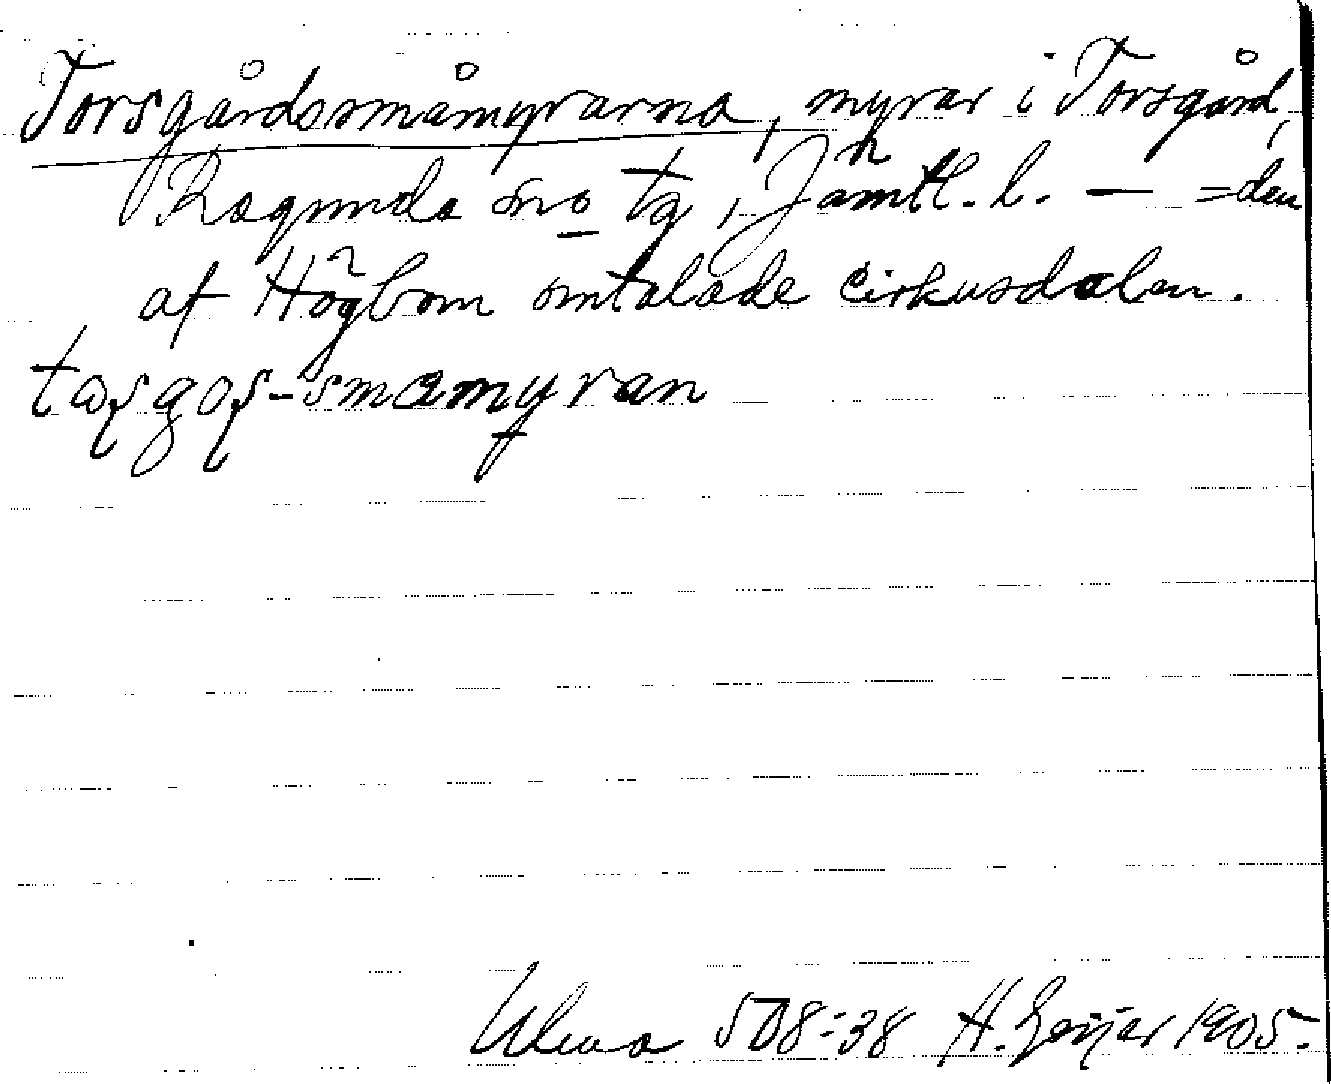 Torsgårdssmåmyrarna, myrar i Torsgård,
Ragunda sn o tg, Jämtl. l. — = den
af Högbom omtalade cirkusdalen.
-småmyran
Uleva 508:38 H. Geijer 1905.